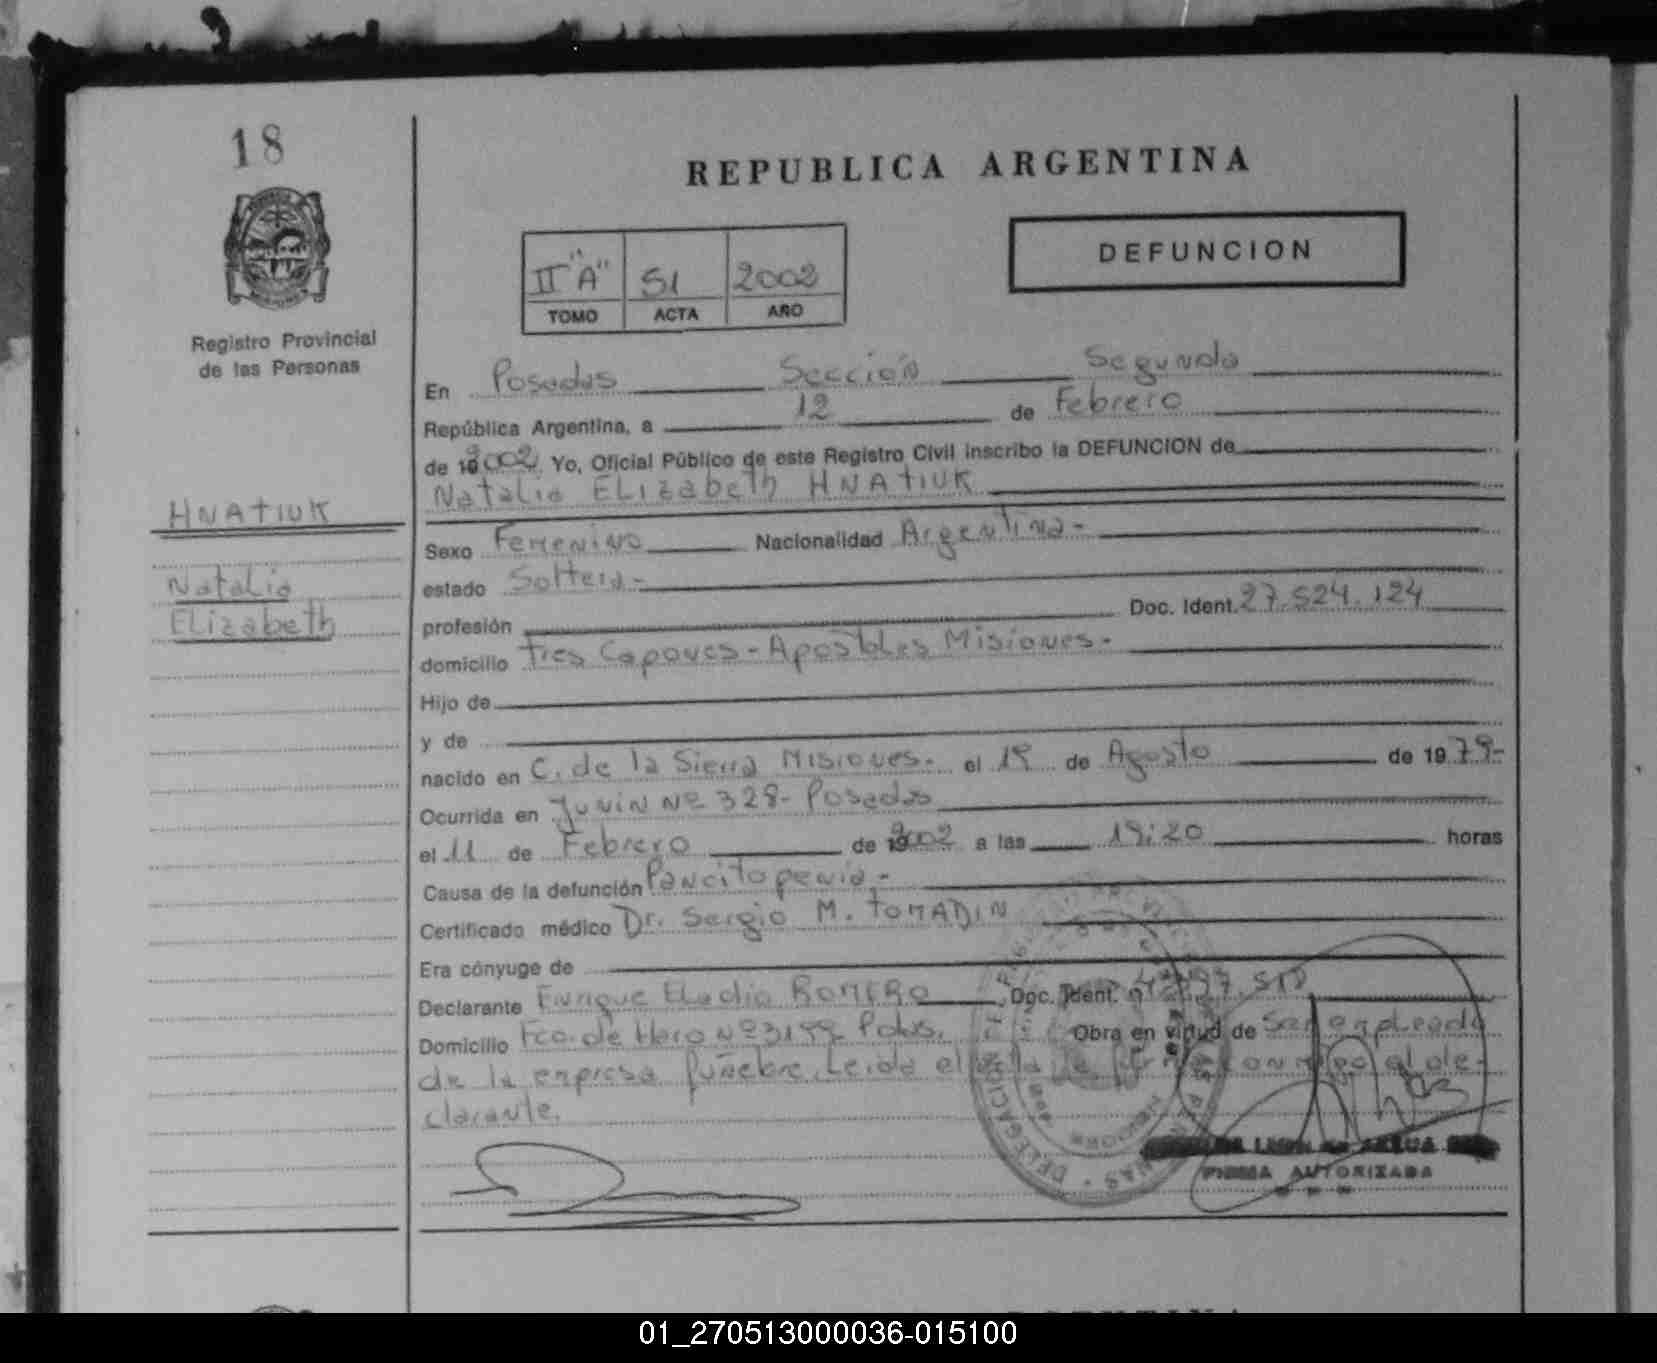 18
REPUBLICA ARGENTINA
DEFUNCION
II "A" 51 2002
TOMO ACTA AÑO
Registro Provincial
de las Personas
En Posadas Sección Segunda
República Argentina, a 12 de Febrero
de 2002 Yo, Oficial Público de este Registro Civil inscribo la DEFUNCION de
Natalia ELizabeth HNAtiuK
HNAtiuK
Natalia
ELizabeth
Sexo Femenino Nacionalidad Argentina-
estado Soltera-
profesión Doc. Ident. 27.524.124
domicilio Tres Capones-Apostoles Misiones-
Hijo de
y de
nacido en C. de la Sierra Misiones- el de Agosto de 1979-
Ocurrida en Junin Nº 328- Posadas
el 11 de Febrero de 2002 a las horas
Causa de la defunción Pancitopenia-
Certificado médico Dr. Sergio M. TOMADIN
Era cónyuge de
Declarante Enrique Eladio ROMERO Doc. Ident.
Domicilio Fco. de Haro Obra en virtud de Ser empleado
de la empresa fuñebre. Leida el acta la firma conmigo el de-
clarante.
FIRMA AUTORIZADA
01_270513000036-015100